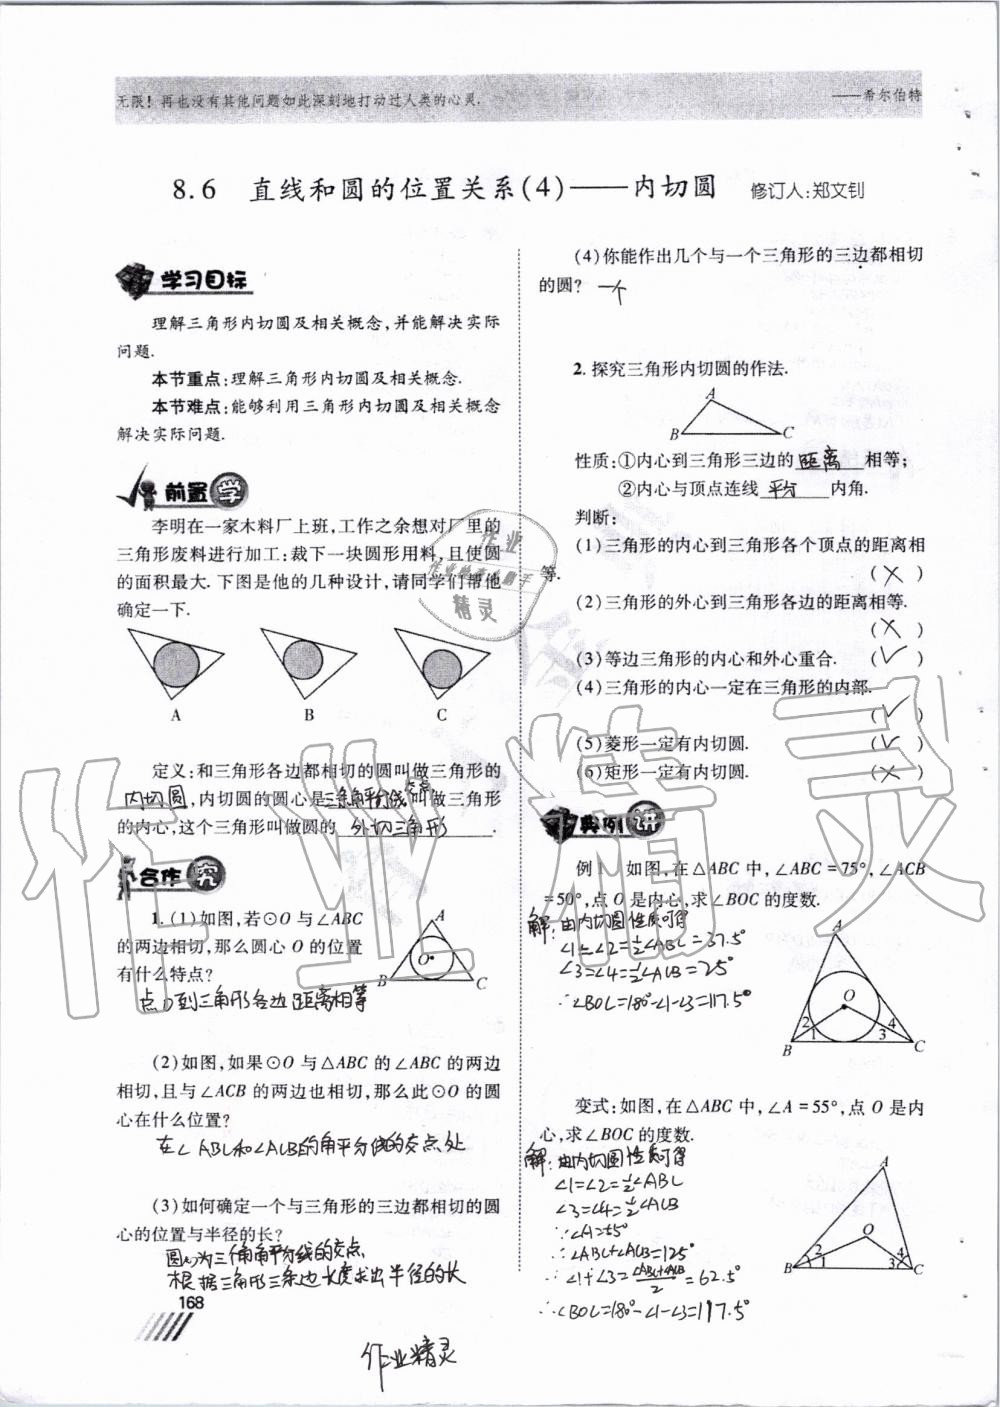 无限！再也没有其他问题如此深刻地打动过人类的心灵.
——希尔伯特
8.6 直线和圆的位置关系(4)——内切圆 修订人:郑文钊
学习目标
理解三角形内切圆及相关概念,并能解决实际
问题.
本节重点:理解三角形内切圆及相关概念.
本节难点:能够利用三角形内切圆及相关概念
解决实际问题.
前置学
李明在一家木料厂上班,工作之余想对厂里的
三角形废料进行加工:裁下一块圆形用料,且使圆
的面积最大.下图是他的几种设计,请同学们帮他
确定一下.
A B C
定义:和三角形各边都相切的圆叫做三角形的
内切圆,内切圆的圆心是三条角平分线交点叫做三角形
的内心,这个三角形叫做圆的 外切三角形.
合作究
1.(1)如图,若⊙O与∠ABC
的两边相切,那么圆心O的位置
有什么特点?
A
O
B C
点O到三角形各边距离相等
(2)如图,如果⊙O与△ABC的∠ABC的两边
相切,且与∠ACB的两边也相切,那么此⊙O的圆
心在什么位置?
在∠ABC和∠ACB的角平分线的交点处
(3)如何确定一个与三角形的三边都相切的圆
心的位置与半径的长?
圆心为三角角平分线的交点
根据三角形三条边长度求出半径的长
168
(4)你能作出几个与一个三角形的三边都相切
的圆? 一个
2.探究三角形内切圆的作法.
A
B C
性质:①内心到三角形三边的 距离 相等;
②内心与顶点连线 平分 内角.
判断:
(1)三角形的内心到三角形各个顶点的距离相
等. (×)
(2)三角形的外心到三角形各边的距离相等.
(×)
(3)等边三角形的内心和外心重合. (√)
(4)三角形的内心一定在三角形的内部.
(√)
(5)菱形一定有内切圆. (√)
(6)矩形一定有内切圆. (×)
典例讲
例1 如图,在△ABC中,∠ABC=75°,∠ACB
=50°,点O是内心,求∠BOC的度数.
解:由内切圆性质可得
∠1=∠2=½∠ABC=37.5°
∠3=∠4=½∠ACB=25°
∴∠BOC=180°-∠1-∠3=117.5°
A
O
2 4
1 3
B C
变式:如图,在△ABC中,∠A=55°,点O是内
心,求∠BOC的度数.
解:由内切圆性质可得
∠1=∠2=½∠ABC
∠3=∠4=½∠ACB
∵∠A=55°
∴∠ABC+∠ACB=125°
∴∠1+∠3=(∠ABC+∠ACB)/2=62.5°
∴∠BOC=180°-∠1-∠3=117.5°
A
O
2 4
1 3
B C
作业精灵
作业
作业检查小助手
精灵
作业精灵